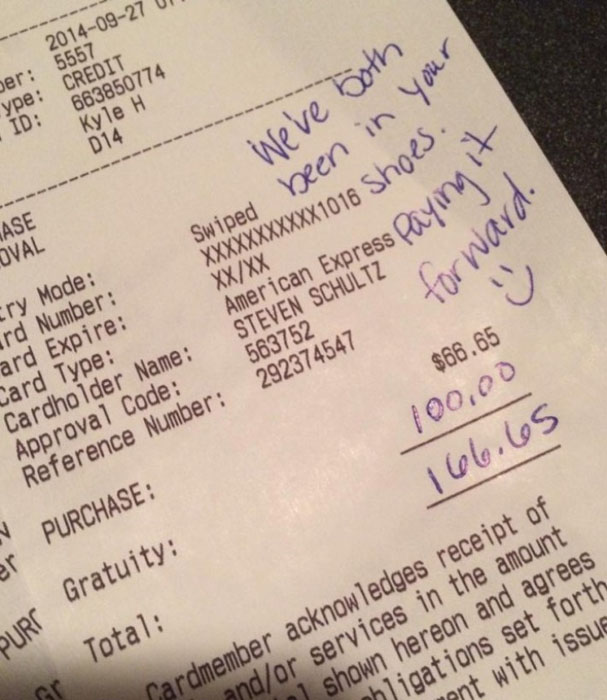 2014-09-27
ber: 5557
ype: CREDIT
ID: 663850774
Kyle H
D14
We've both
been in your
shoes.
Paying it
forward.
:)
ASE
OVAL
try Mode: Swiped
rd Number: XXXXXXXXXXX1016
ard Expire: XX/XX
Card Type: American Express
Cardholder Name: STEVEN SCHULTZ
Approval Code: 563752
Reference Number: 292374547
PURCHASE: $66.65
Gratuity: 100.00
Total: 166.65
er
PURC
Gr
Cardmember acknowledges receipt of
and/or services in the amount
l shown hereon and agrees
bligations set forth
ment with issue